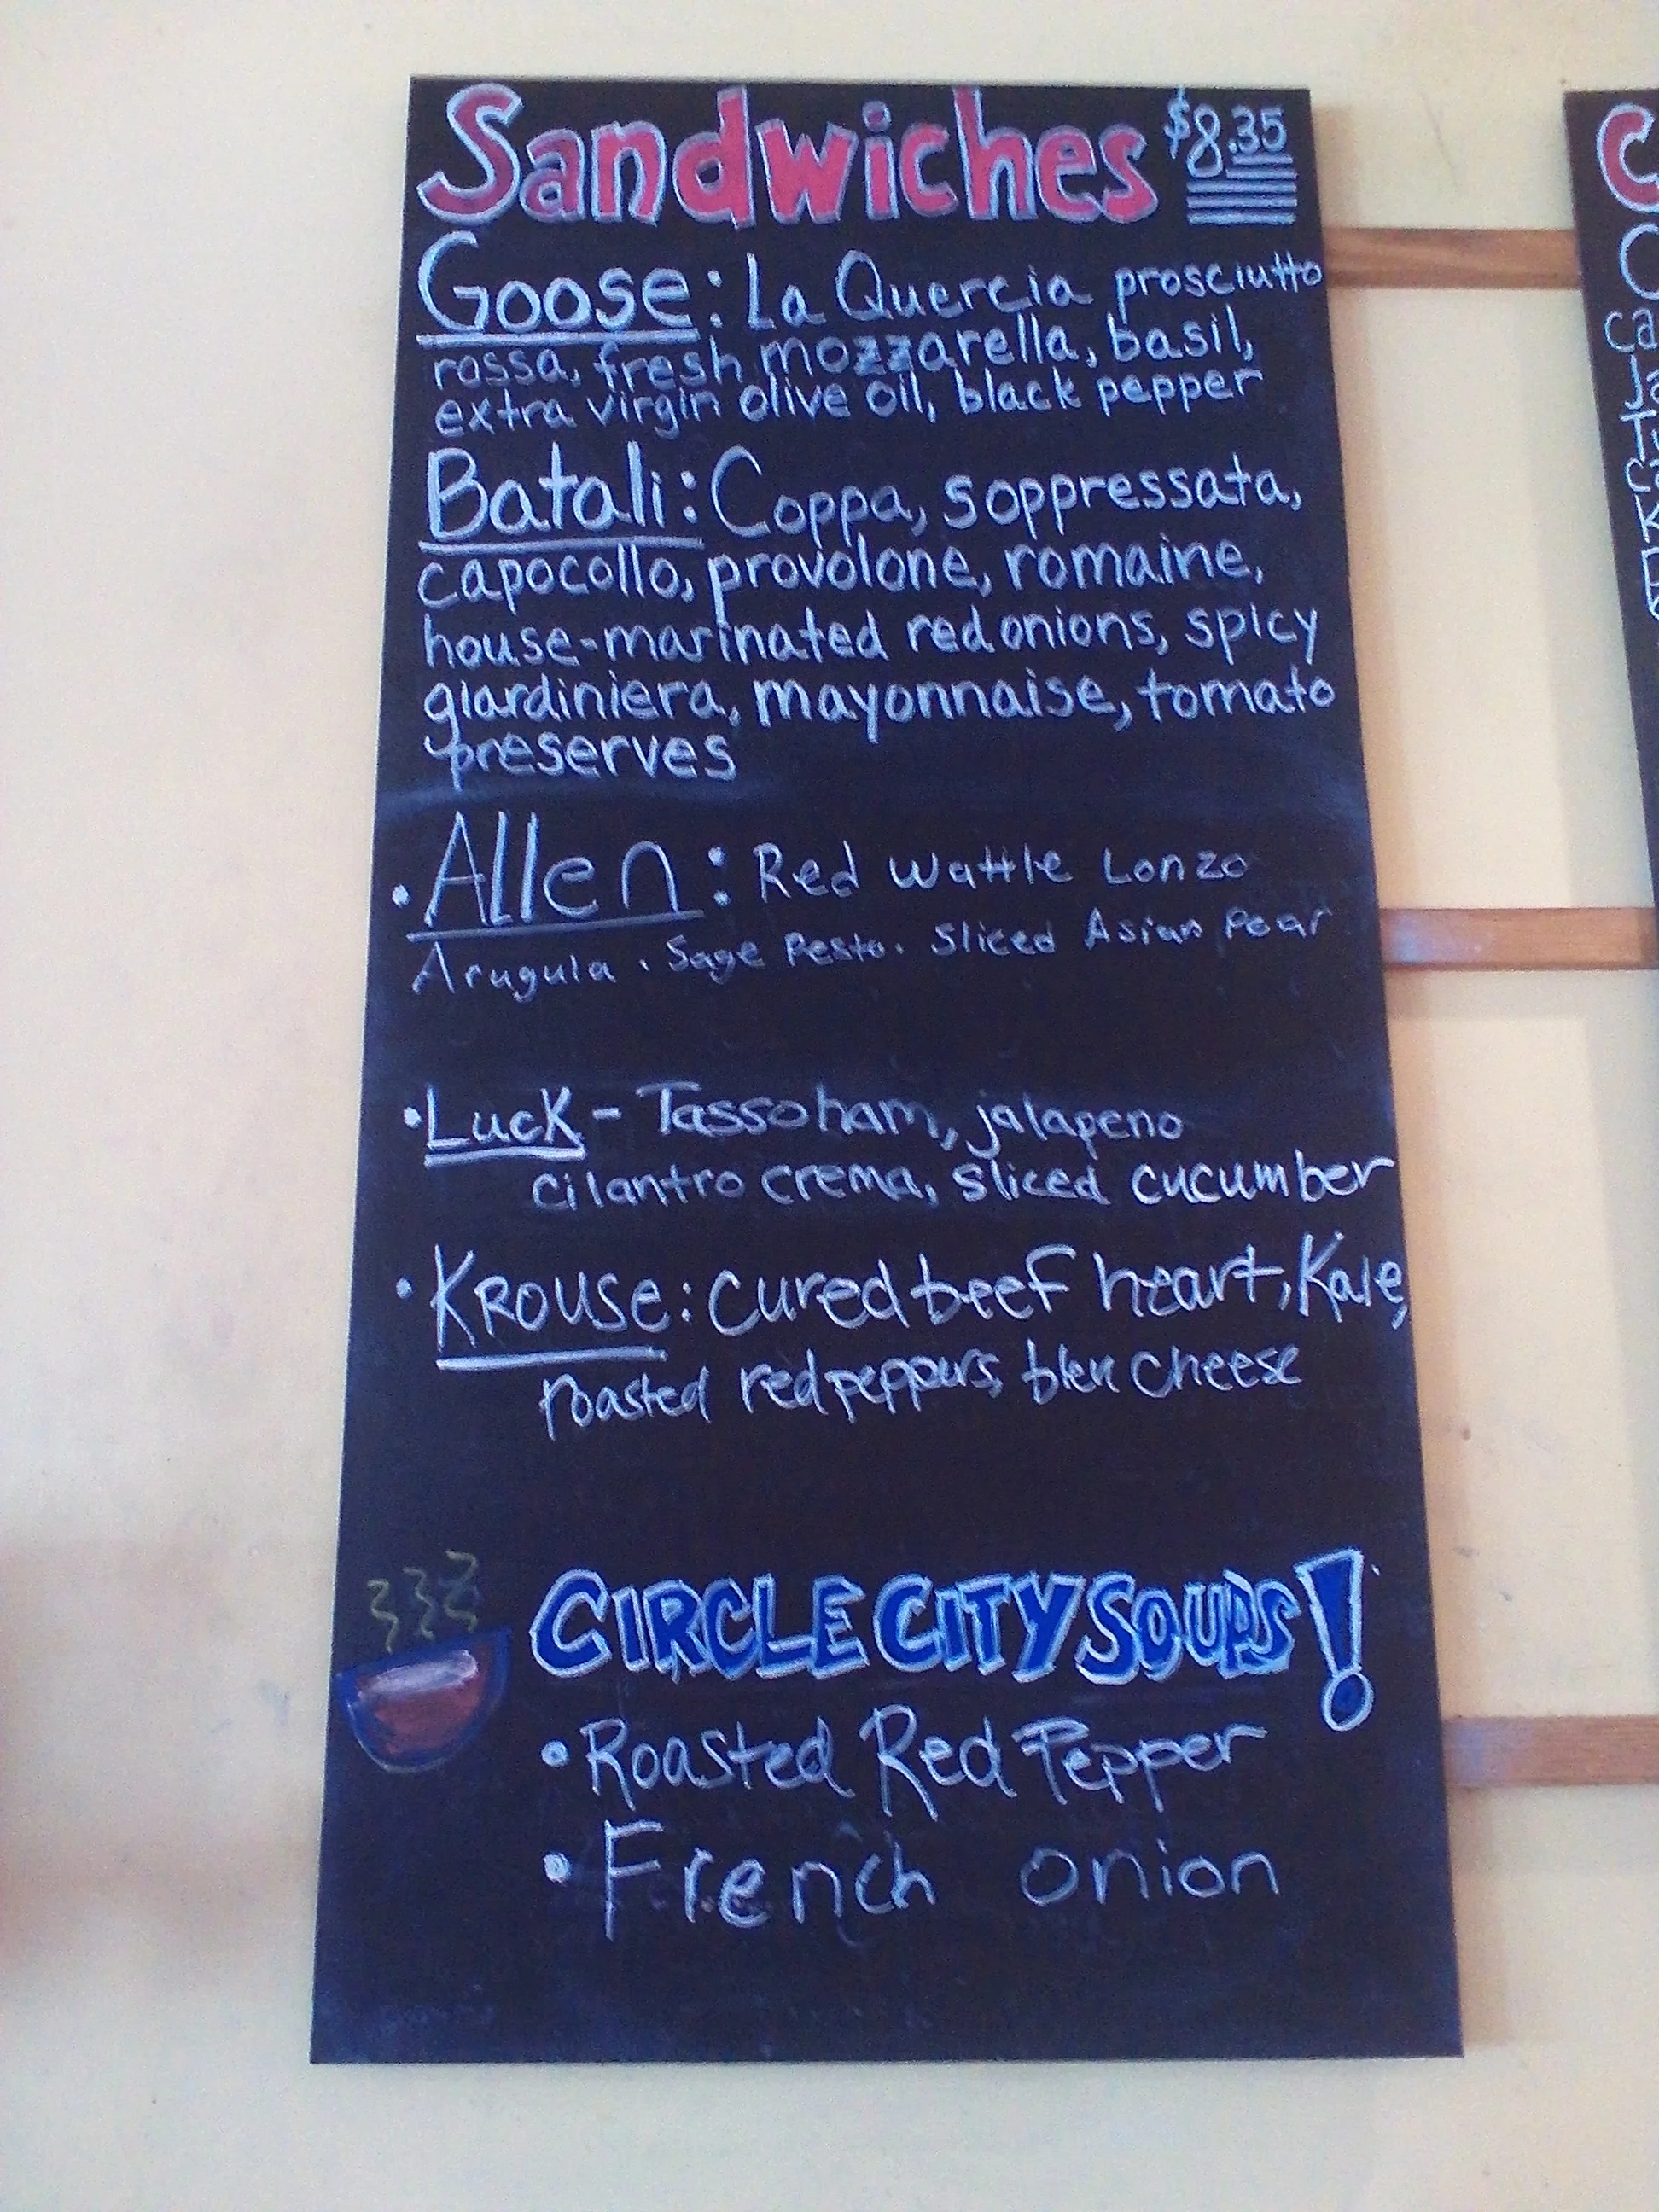 Sandwiches $8.35
Goose: La Quercia prosciutto
rossa, fresh mozzarella, basil,
extra virgin olive oil, black pepper
Batali: Coppa, soppressata,
capocollo, provolone, romaine,
house-marinated red onions, spicy
giardiniera, mayonnaise, tomato
preserves
• Allen: Red Wattle Lonzo
Arugula. Sage Pesto. Sliced Asian Pear
• Luck - Tasso ham, jalapeno
cilantro crema, sliced cucumber
• KROUSe: cured beef heart, Kale,
roasted red peppers, bleu cheese
CIRCLE CITY SOUPS!
• Roasted Red Pepper
• French onion